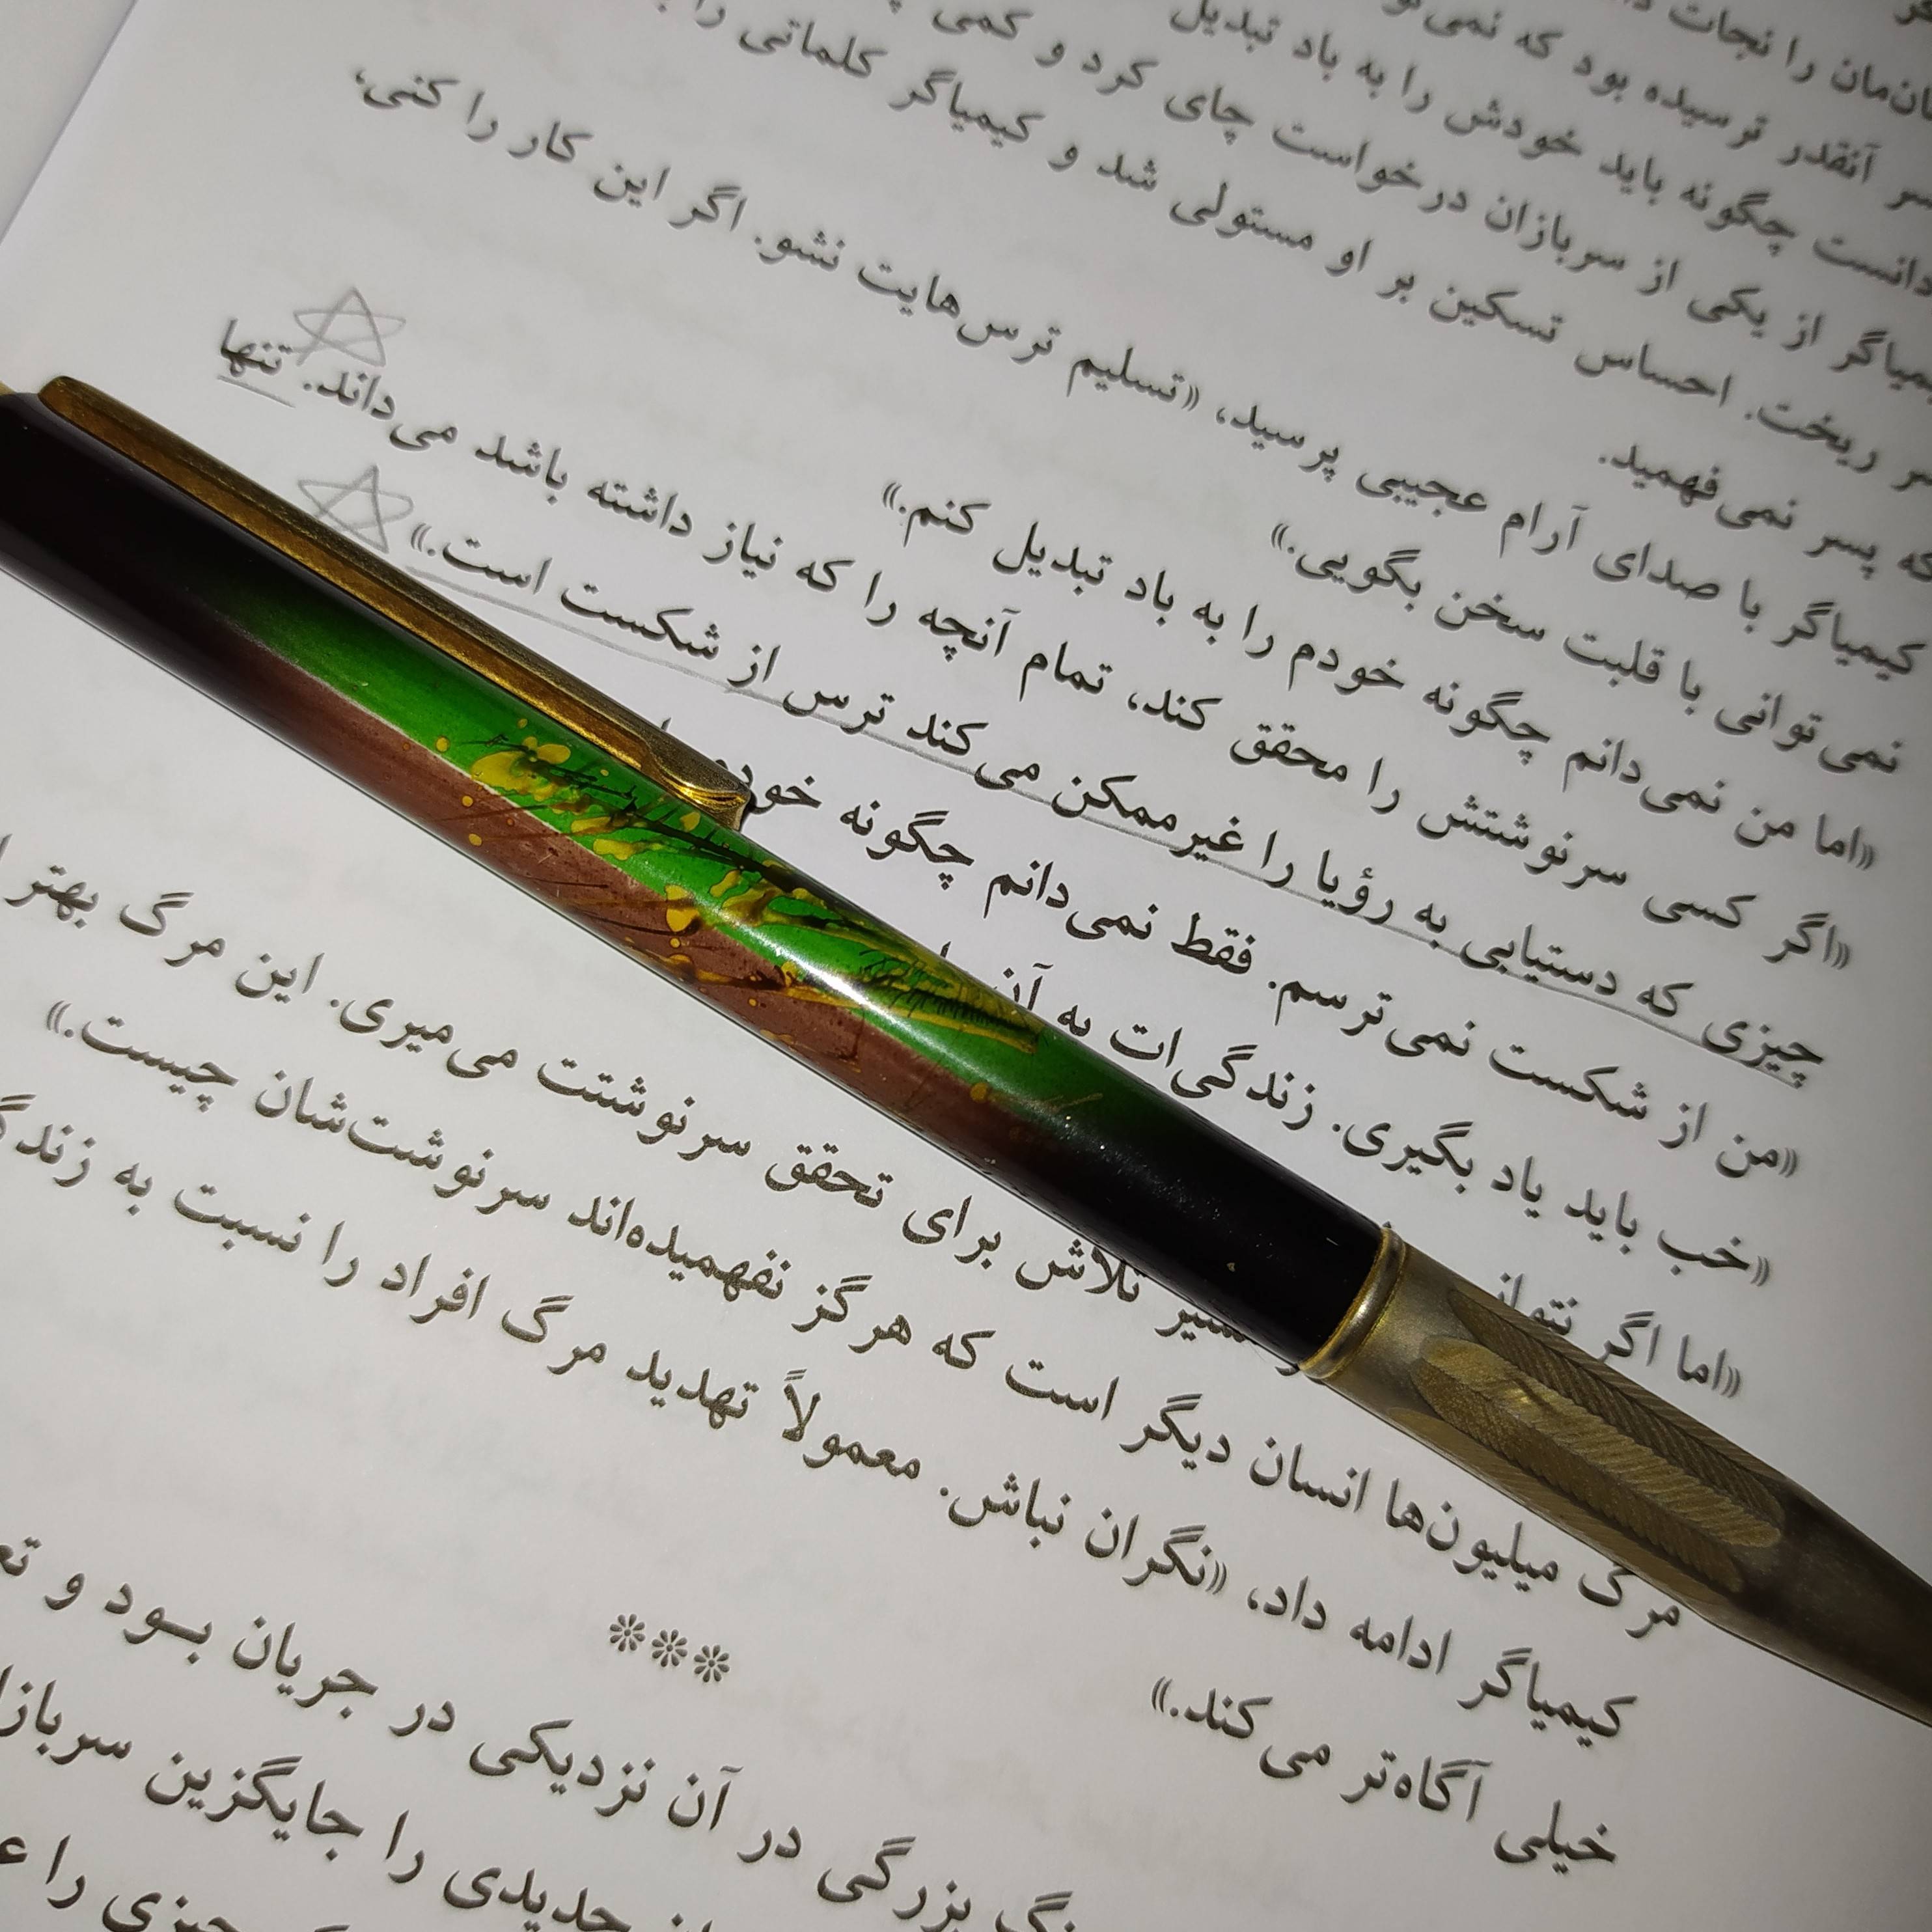 ان‌مان را نجات
سر آنقدر ترسیده بود که نمی‌تو
دانست چگونه باید خودش را به باد تبدیل
یمیاگر از یکی از سربازان درخواست چای کرد و کمی
سر ریخت. احساس تسکین بر او مستولی شد و کیمیاگر کلماتی را
که پسر نمی‌فهمید.
کیمیاگر با صدای آرام عجیبی پرسید، «تسلیم ترس‌هایت نشو. اگر این کار را کنی،
نمی‌توانی با قلبت سخن بگویی.»
«اما من نمی‌دانم چگونه خودم را به باد تبدیل کنم.»
«اگر کسی سرنوشتش را محقق کند، تمام آنچه را که نیاز داشته باشد می‌داند. تنها
چیزی که دستیابی به رؤیا را غیرممکن می‌کند ترس از شکست است.»
«من از شکست نمی‌ترسم. فقط نمی‌دانم چگونه خودم
«خب باید یاد بگیری. زندگی‌ات به آن
«اما اگر نتوانم
مسیر تلاش برای تحقق سرنوشتت می‌میری. این مرگ بهتر
مرگ میلیون‌ها انسان دیگر است که هرگز نفهمیده‌اند سرنوشت‌شان چیست.»
کیمیاگر ادامه داد، «نگران نباش. معمولاً تهدید مرگ افراد را نسبت به زندگ
خیلی آگاه‌تر می‌کند.»
***
نگ بزرگی در آن نزدیکی در جریان بود و تع
جدیدی را جایگزین سرباز
چیزی را ع